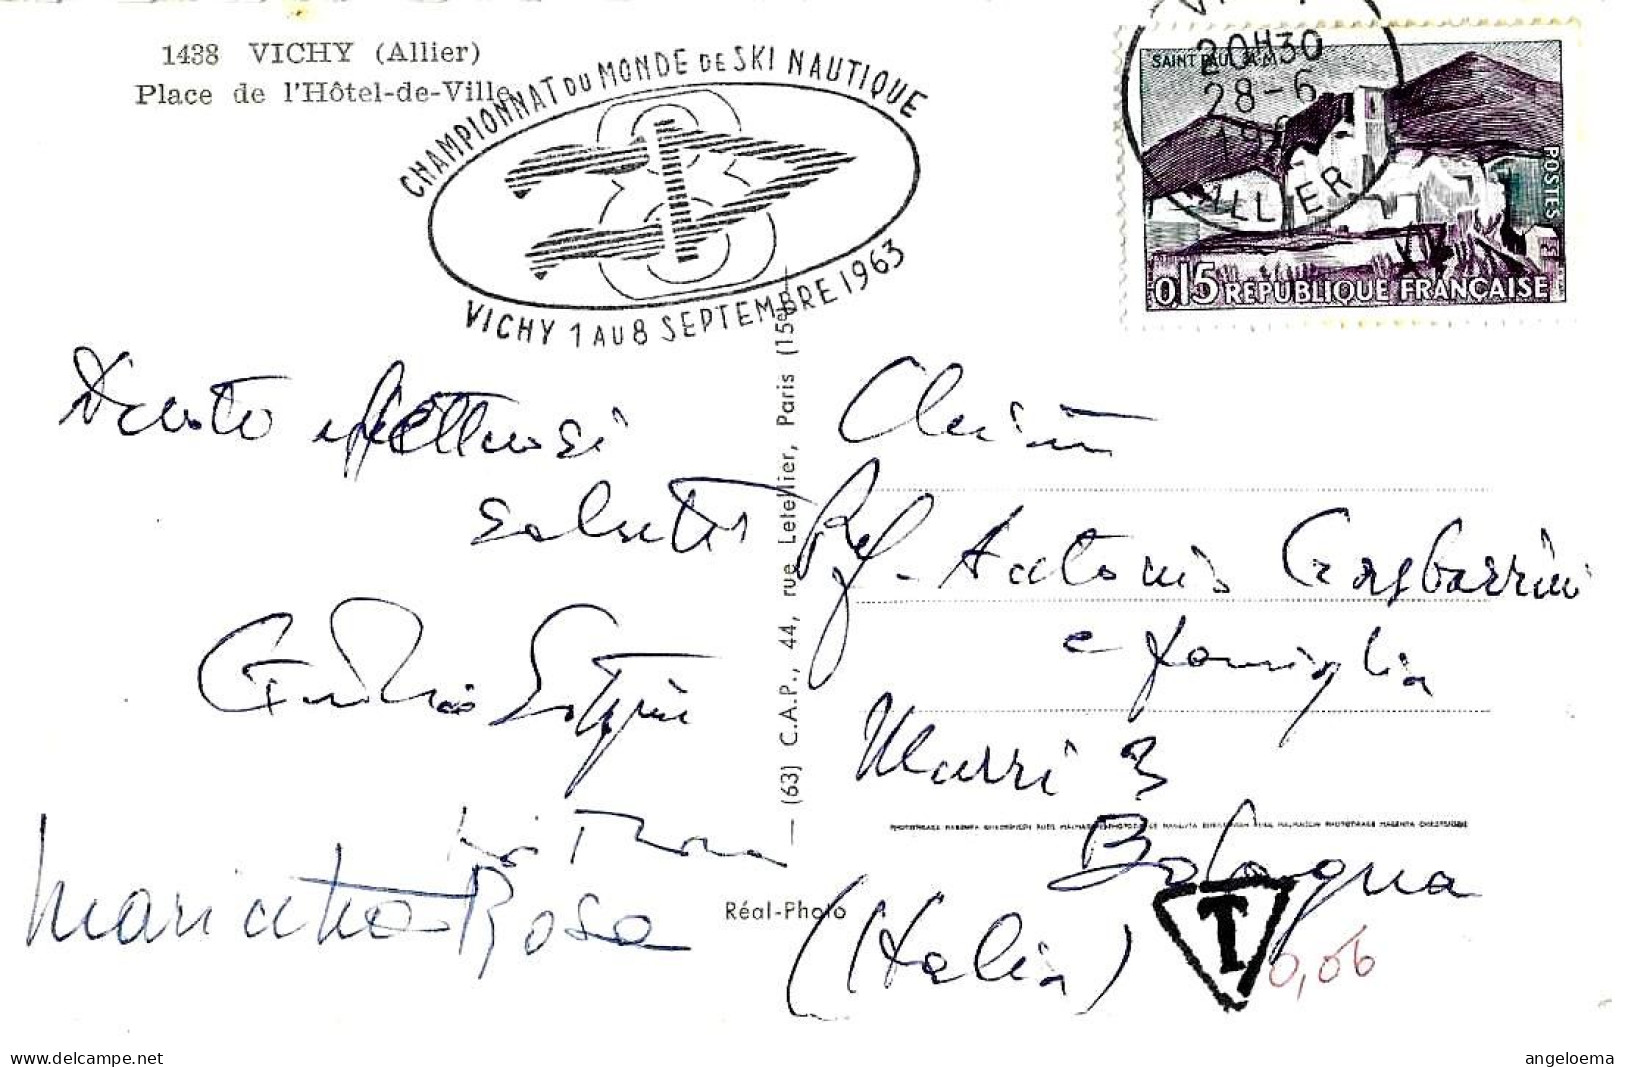 1438 VICHY (Allier)
Place de l'Hôtel-de-Ville
CHAMPIONNAT DU MONDE DE SKI NAUTIQUE
VICHY 1 AU 8 SEPTEMBRE 1963
20H30
28-6
ALLIER
SAINT PAUL
POSTES
0,15 RÉPUBLIQUE FRANÇAISE
affettuosi
saluti
Prof. Antonio Gasbarrini
e famiglia
Murri 3
Bologna
(Italia)
Rosa
— (63) C.A.P., 44, rue Letellier, Paris (15e)
Réal-Photo
T
0,06
angeloema
www.delcampe.net